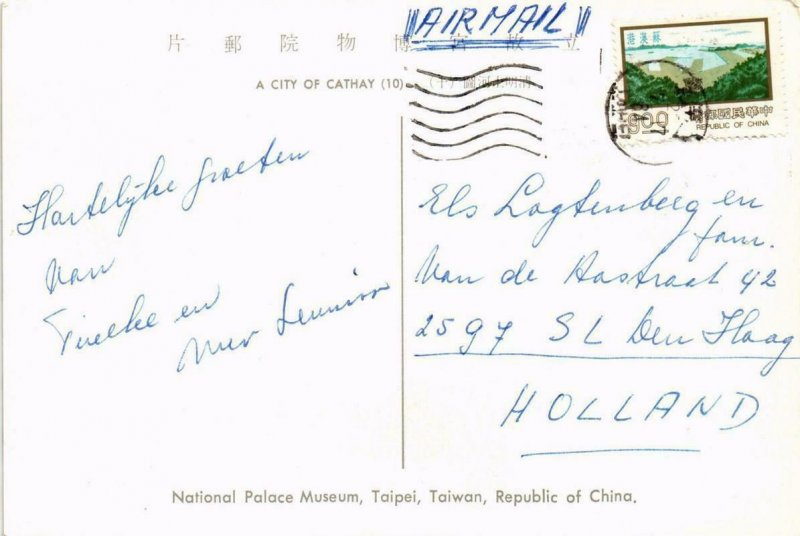 AIRMAIL
片 郵 院 物 博 宮 故 立
A CITY OF CATHAY (10)
蘇澳港
9.00
中華民國郵票
REPUBLIC OF CHINA
Hartelijke groeten
van
Tineke en
Els Logtenberg en
fam.
Van de Aastraat 42
2597 SL Den Haag
HOLLAND
National Palace Museum, Taipei, Taiwan, Republic of China.